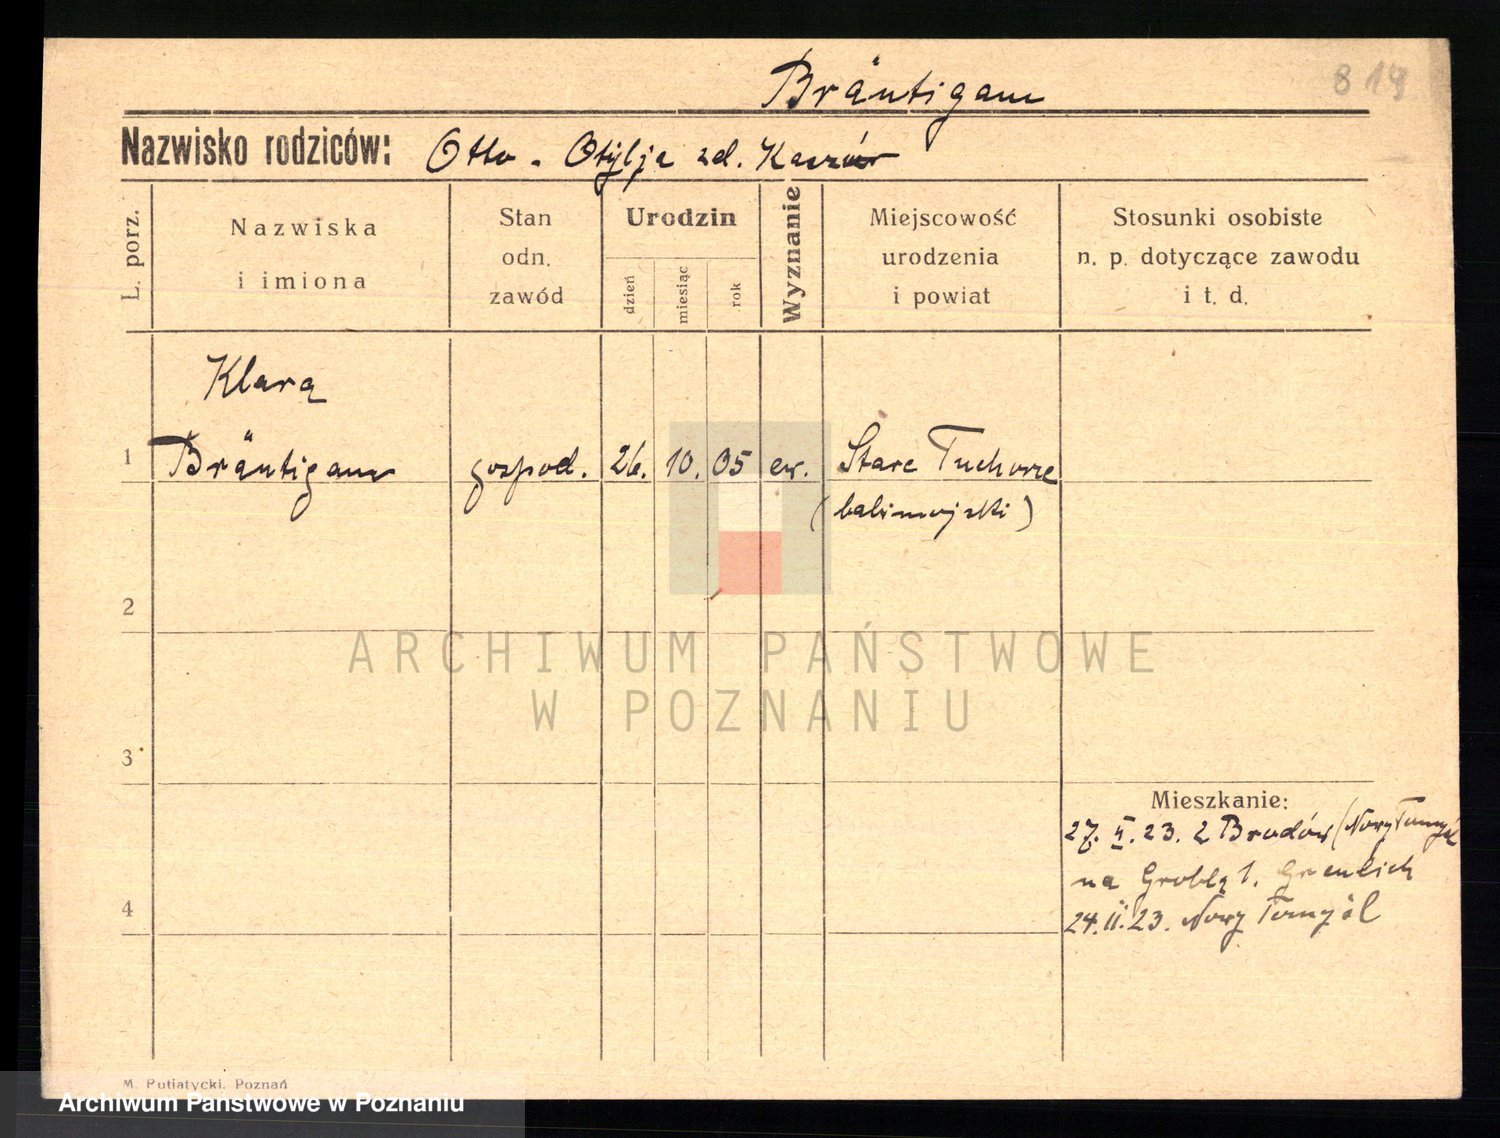 Bräutigam
819
Nazwisko rodziców: Otto - Otylja zd.
L. porz.
Nazwiska i imiona
Stan odn. zawód
Urodzin
dzień
miesiąc
rok
Wyznanie
Miejscowość urodzenia i powiat
Stosunki osobiste n. p. dotyczące zawodu i t. d.
Klara
1 Bräutigam gospod. 26. 10. 05 ew. Stare Tuchorze
(babimojski)
2
3
Mieszkanie:
27. 23. z Brodów (Nowy Tomyśl
na Groblą 1.
4
24.II.23. Nowy Tomyśl
ARCHIWUM PAŃSTWOWE
W POZNANIU
M. Putiatycki, Poznań
Archiwum Państwowe w Poznaniu